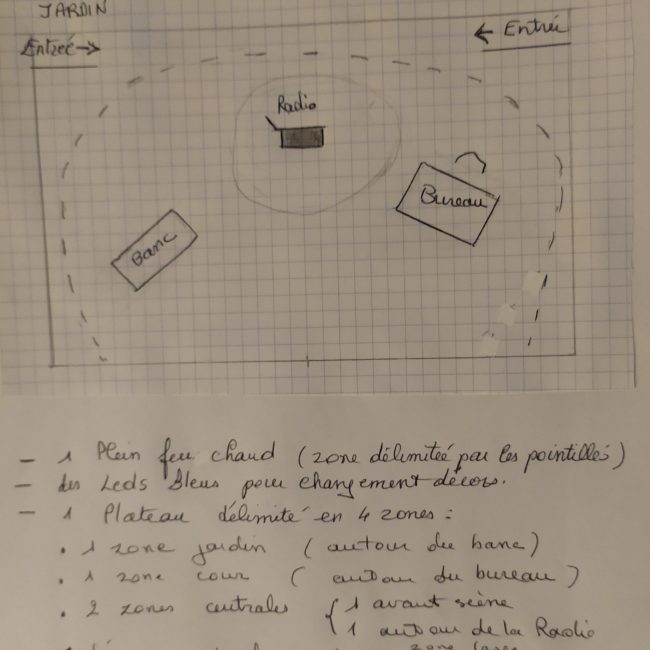 JARDIN
Entrée →
← Entrée
Radio
Bureau
Banc
- 1 Plein feu chaud (zone délimitée par les pointillés)
- des Leds Bleus pour changement décors.
- 1 Plateau délimité en 4 zones :
• 1 zone jardin (autour du banc)
• 1 zone cour (autour du bureau)
• 2 zones centrales { 1 avant scène
1 autour de la Radio